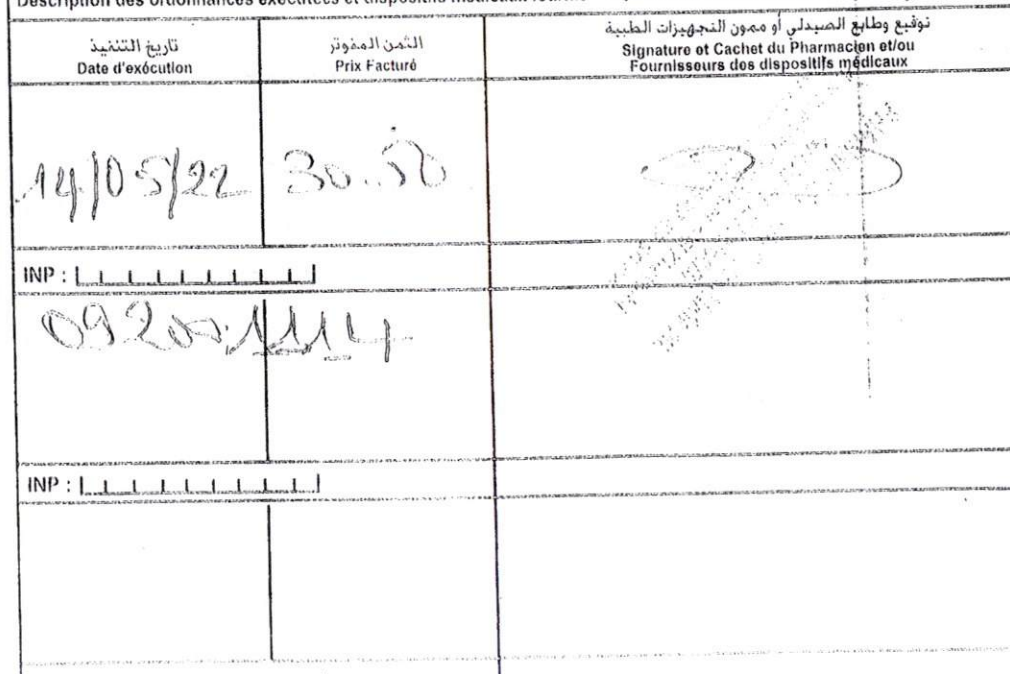 Description des ordonnances exécutées et dispositifs médicaux
تاريخ التنفيذ
Date d'exécution
الثمن المفوتر
Prix Facturé
توقيع وطابع الصيدلي أو ممون التجهيزات الطبية
Signature et Cachet du Pharmacien et/ou
Fournisseurs des dispositifs médicaux
14/05/22
30.50
INP :
092001114
INP :